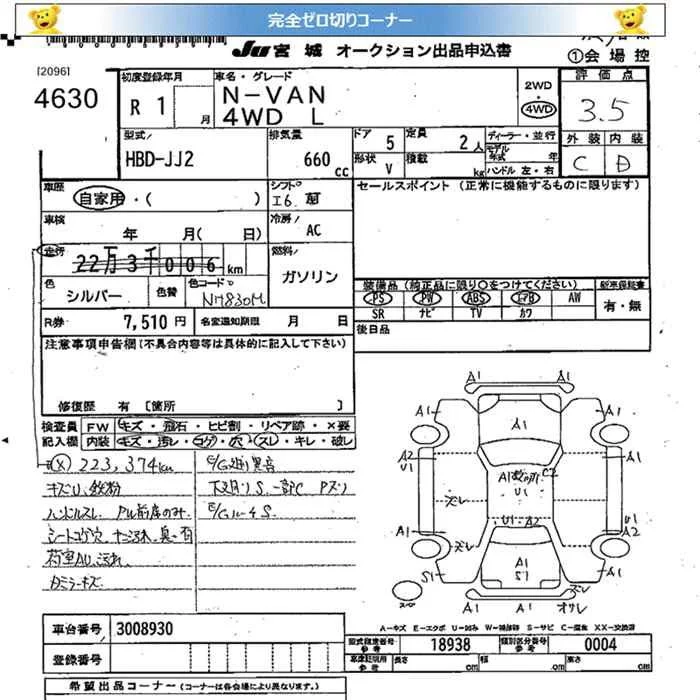 完全ゼロ切りコーナー
JU 宮城 オークション出品申込書
①会場控
[2096]
4630
初度登録年月
R 1 月
車名・グレード
N-VAN
4WD L
2WD
・
4WD
評価点
3.5
型式
HBD-JJ2
排気量
660 cc
ドア 5
定員 2人
形状 V
積載 kg
ディーラー・並行
モデル年式 年
ハンドル 左・右
外装 内装
C D
車歴
自家用・( )
シフト
I6.
セールスポイント (正常に機能するものに限ります)
車検
年 月( 日)
冷房
AC
走行
22万3千006km
燃料
ガソリン
色
シルバー
色替
色コードNo
NH830M
装備品 (純正品に限り○をつけてください)
新車保証書
PS PW ABS エアB AW
SR ナビ TV カワ
有・無
R券 7,510 円
名変通知期限 月 日
後日品
注意事項申告欄 (不具合内容等は具体的に記入して下さい)
修復歴 有 [箇所 ]
検査員 FW キズ・飛石・ヒビ割・リペア跡・×要
記入欄 内装 キズ・汚レ・コゲ・穴・スレ・キレ・破レ
(X) 223,374km
キズU、鉄粉
ハンドルスレ、PW前席のみ
シートコゲ穴
荷室AU、汚れ
カミラーキズ
下廻りS、一部C
A1 A1
A1 A1 A1
A2
U1
A1
U1
C2
A1
スレ
U1・A2
A1
U1
A2
スレ
A1
S1
S1
A1
スペア
A1 A1 オリレ
スレ
A-キズ E-エクボ U-凹み W-補修跡 S-サビ C-腐食 XX-交換済
車台番号 3008930
型式類別番号参考 18938
類別区分番号参考 0004
登録番号
車庫証明用参考 長さ cm 幅 cm 高さ cm
希望出品コーナー (コーナーは各会場により異なります。)